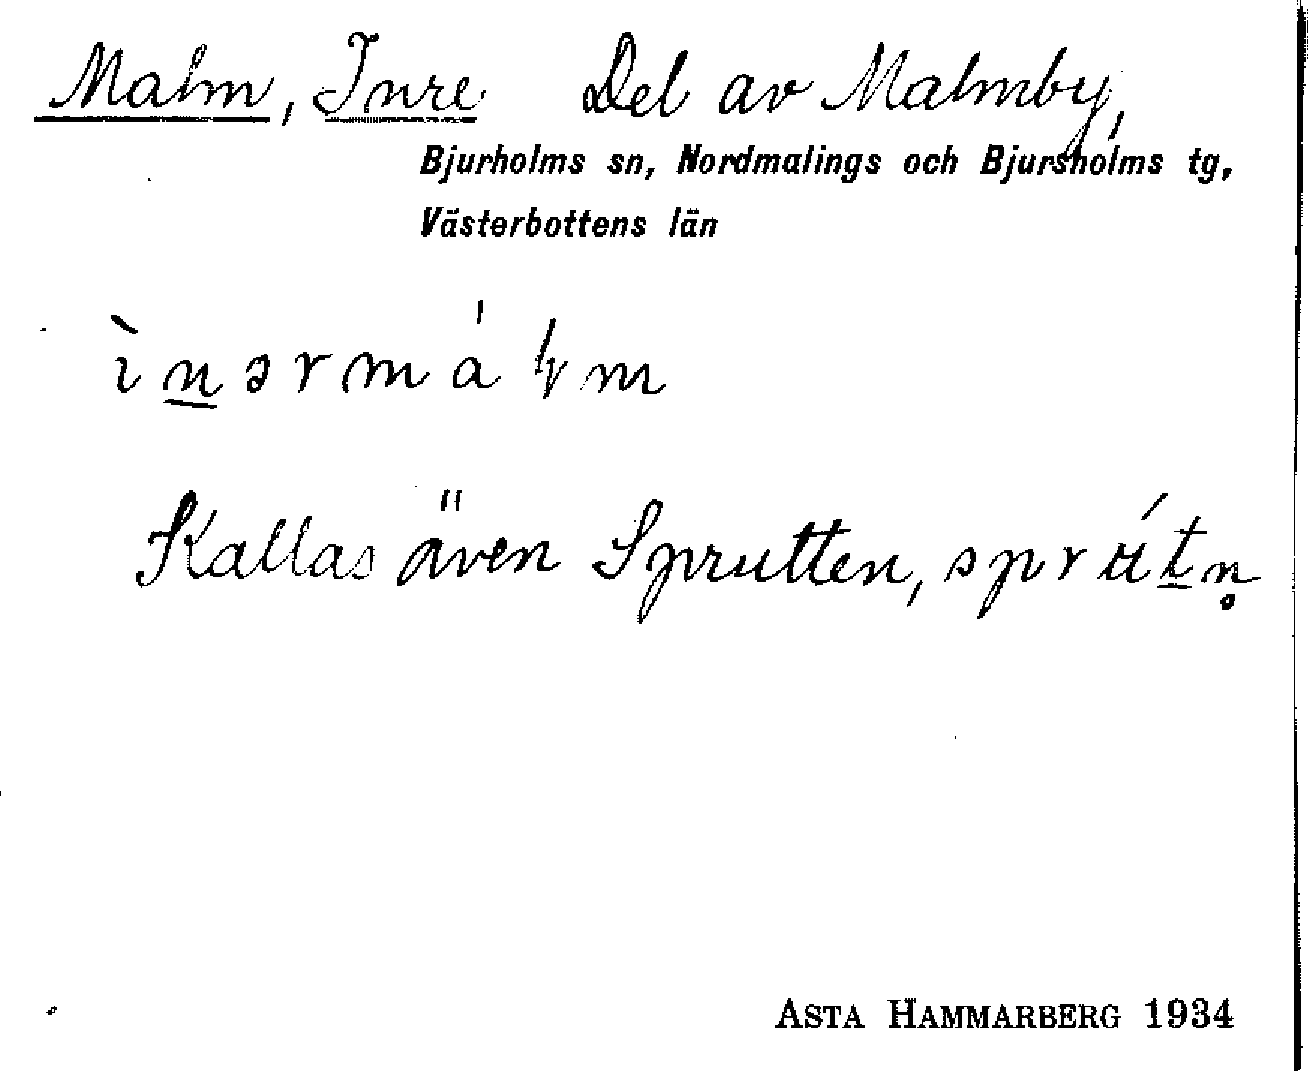 Malm, Inre Del av Malmby,
Bjurholms sn, Nordmalings och Bjursholms tg,
Västerbottens län
ìn̲ərmálm
Kallas även Sprutten, sprút̲n̥
ASTA HAMMARBERG 1934